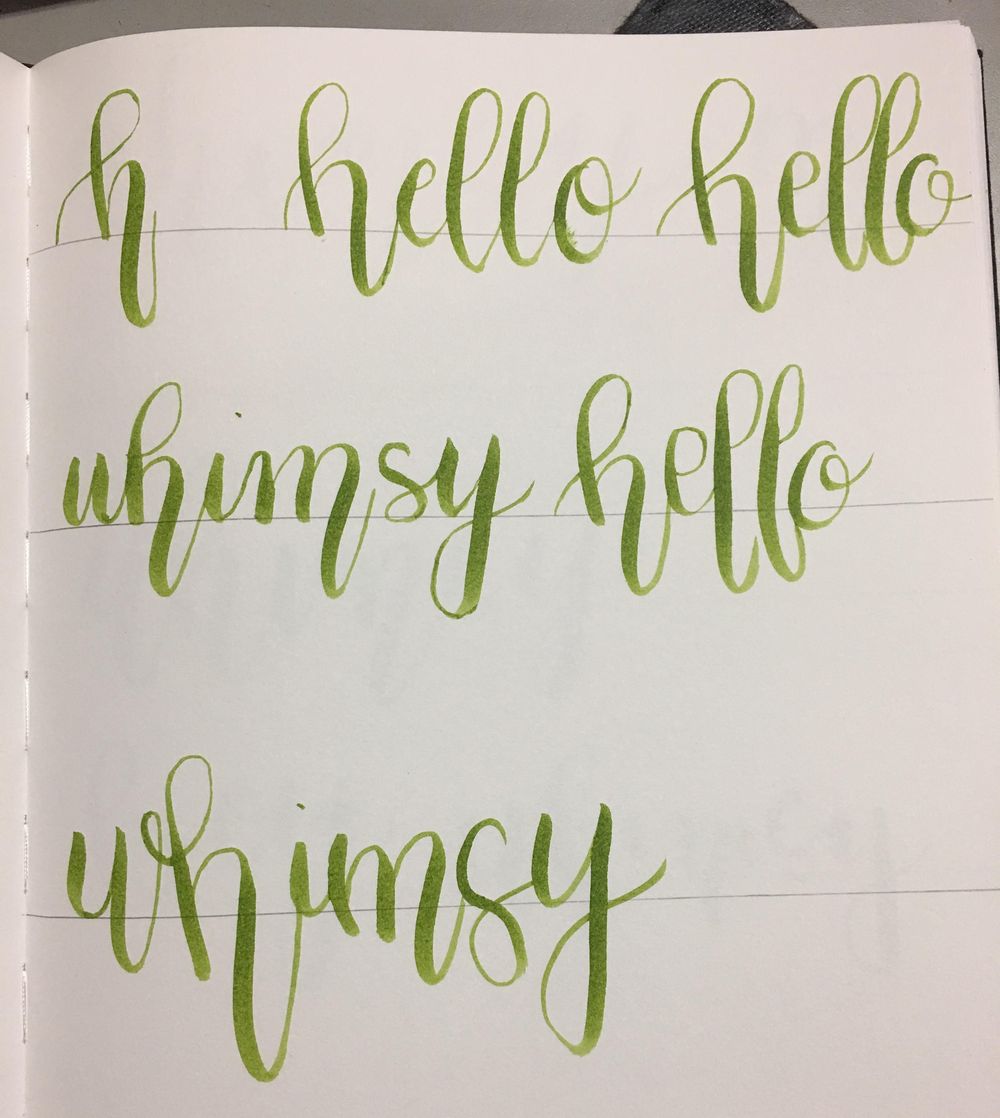 h hello hello
whimsy hello
whimsy